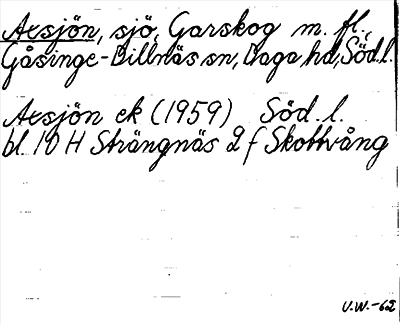 Aesjön, sjö, Garskog m. fl.,
Gåsinge-Dillnäs sn, Daga hd, Söd.l.
Aesjön ek (1959) Söd. l.
bl. 10 H Strängnäs 2 f Skottvång
U.W.-62